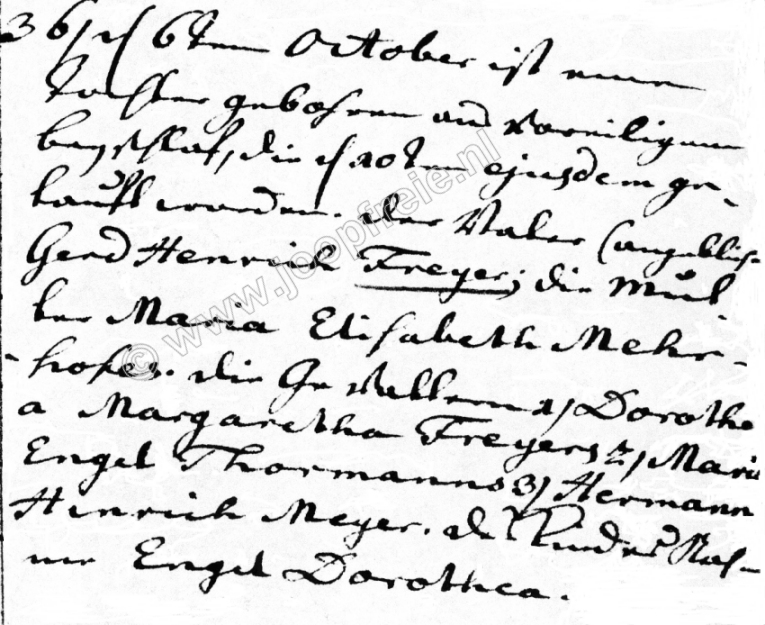 36, d 6ten October ist eine
Tochter gebohren aus voreiligem
beyschlaf, die d 10ten ejusdem ge-
tauft worden. der Vater (angeblich
Gerd Henrich Freyer; die Mut
ter Maria Elisabeth Mehr-
hofes. die Gevattern 1, Dorothe
a Margaretha Freyers 2, Maria
Engel Thormanns 3, Hermann
Hinrich Meyer. des Kindes Nah-
me Engel Dorothea.
© www.joopfreie.nl